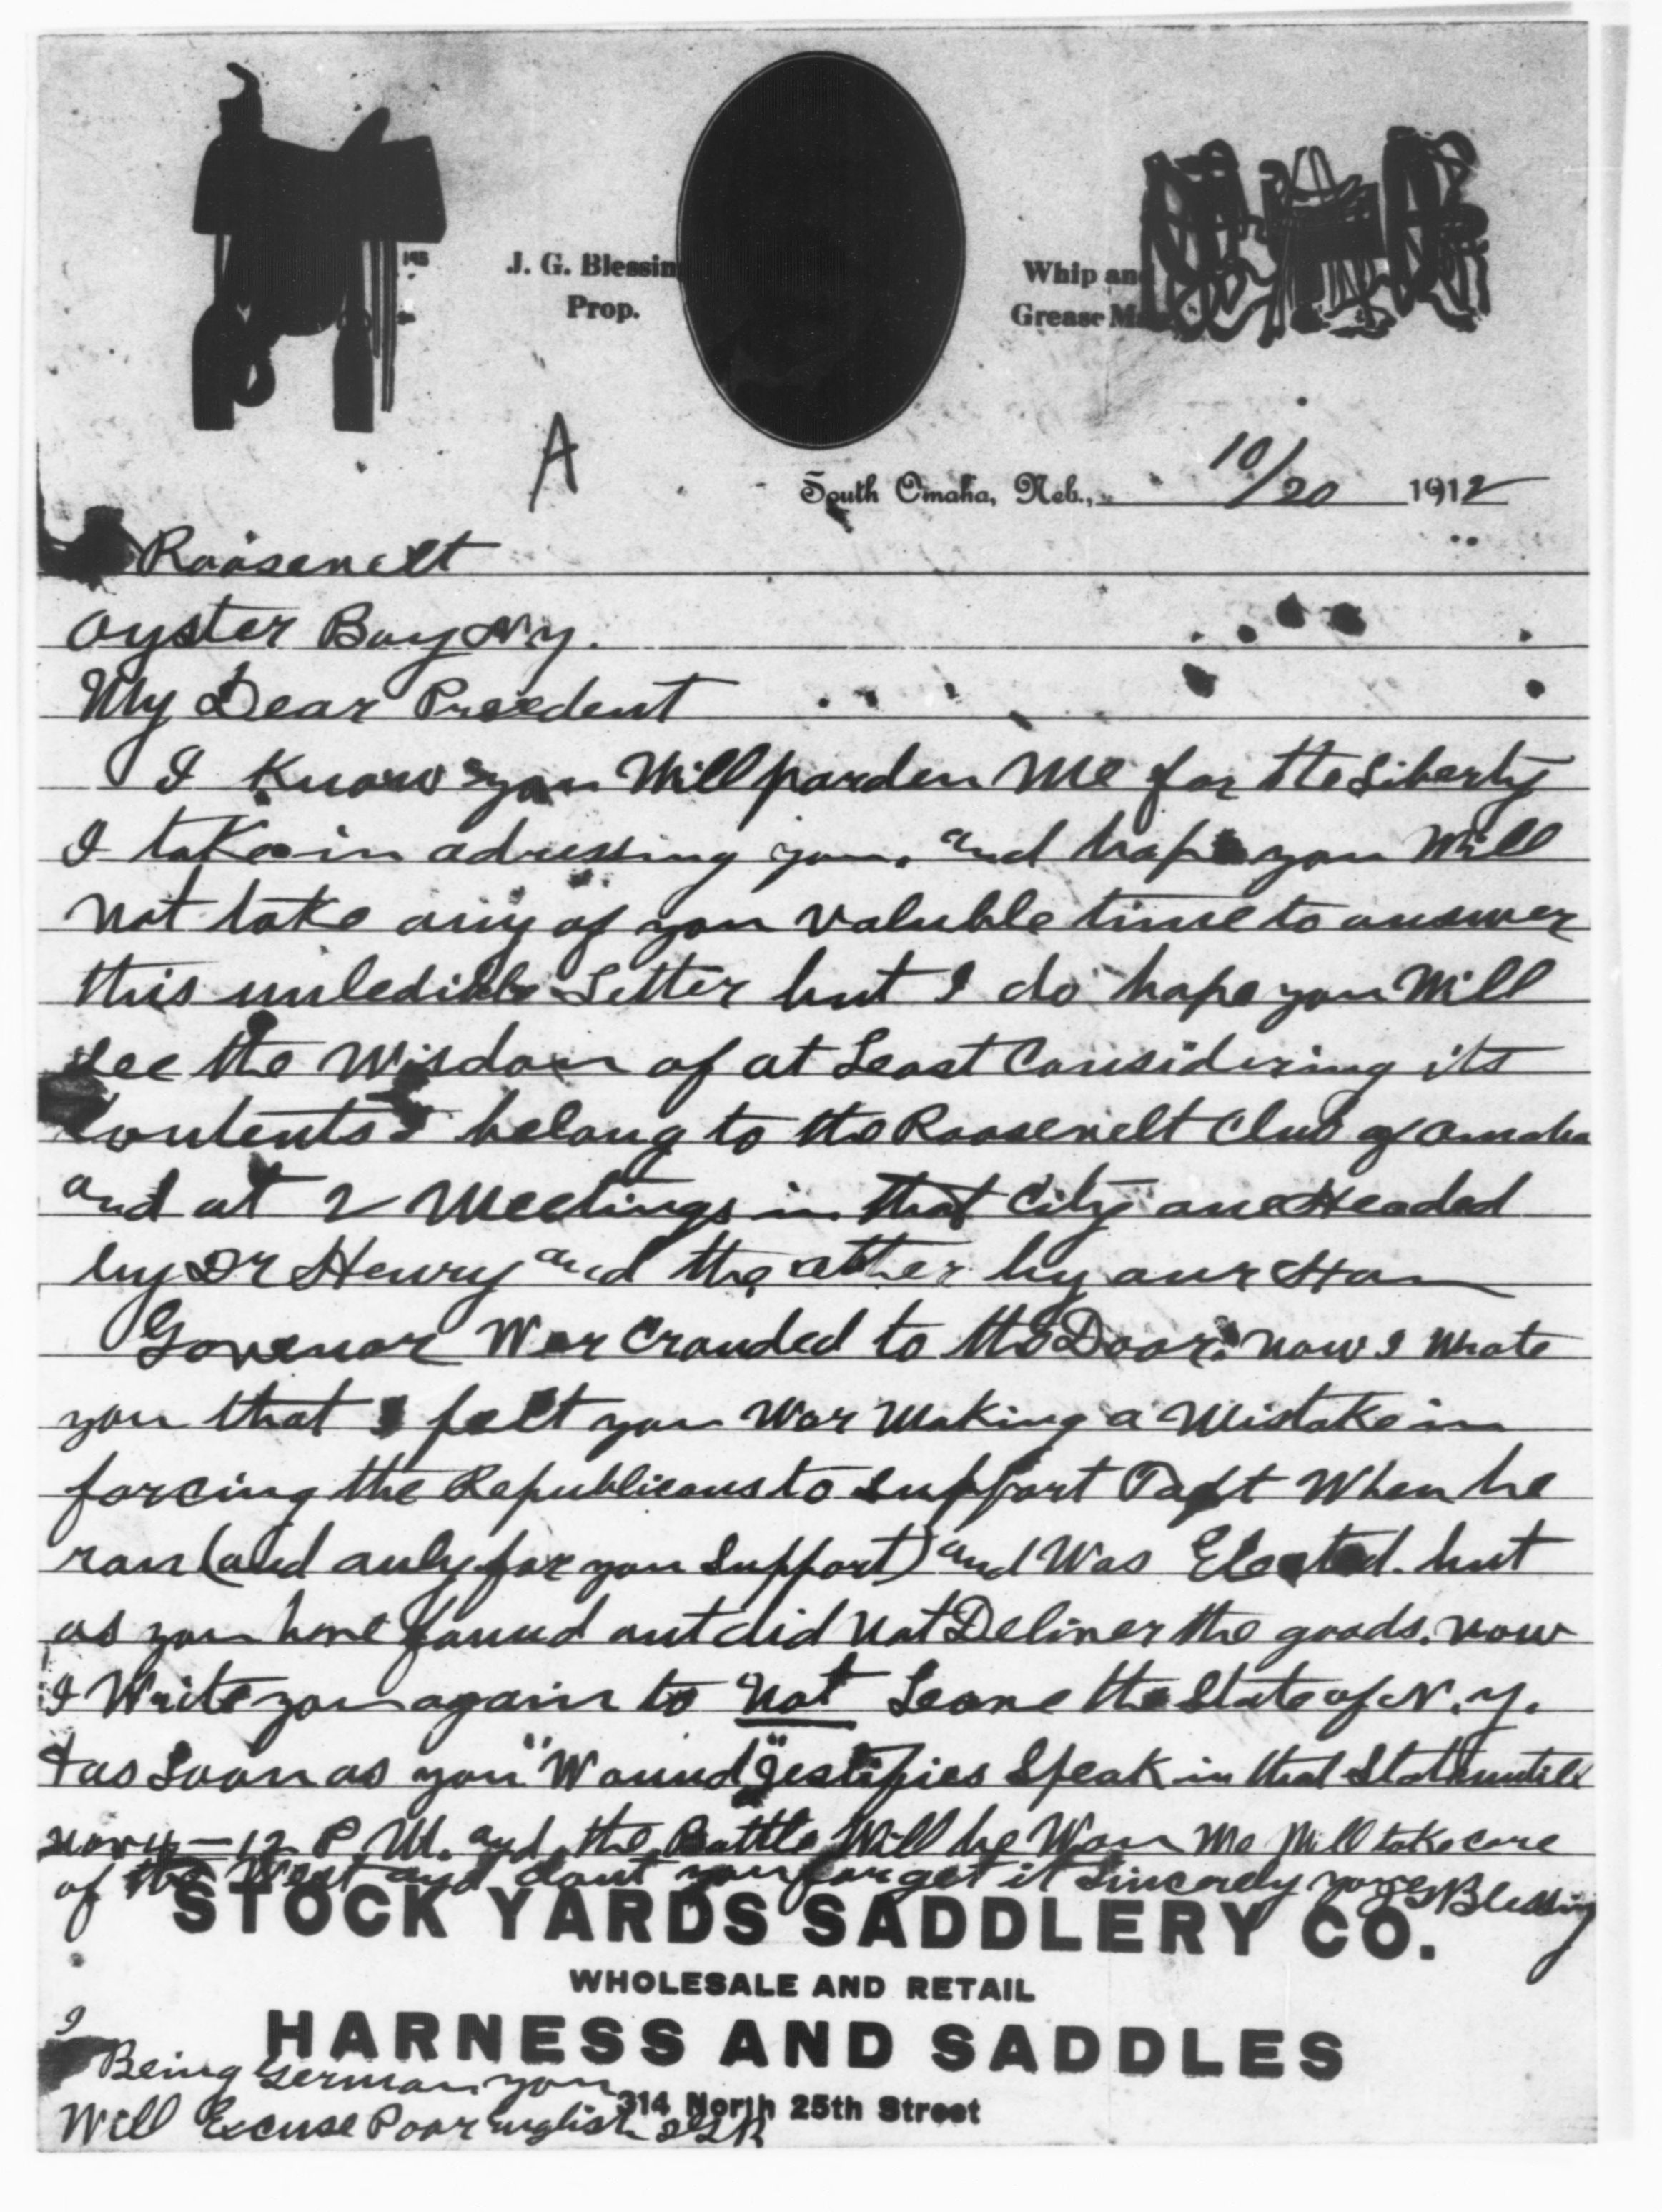 J. G. Blessin
Prop.
Whip an
Grease M
A
South Omaha, Neb., 10/20 1912
Roosevelt
Oyster Bay N.Y.
My Dear Presedent
I Know you Will parden Me for the Liberty
I take in adressing you, and hope you Will
not take any of you valuble time to answer
this unledible Letter but I do hope you Will
see the Wisdom of at Least Considering its
Contents I belong to the Roosevelt Club of Omaha
and at 2 Meetings in that City one Headed
by Dr Henry and the other by our Hon
Govenor War Crouded to the Door. now I Wrote
you that I felt you War Making a Mistake in
forcing the Republicans to support Taft When he
ran (and only for you Support) and Was Elected. but
as you have found out did not Deliver the goods. now
I Write you again to not Leave the State of N.Y.
& as Soon as you "Wound" jestifies Speak in that State untill
nov 4 - 12 P.M. and the Battle Will be Won We Will take care
of the West and dont you forget it Sincerely yours JGBlessing
STOCK YARDS SADDLERY CO.
WHOLESALE AND RETAIL
HARNESS AND SADDLES
314 North 25th Street
I
Being German you
Will Excuse Poor english JGB